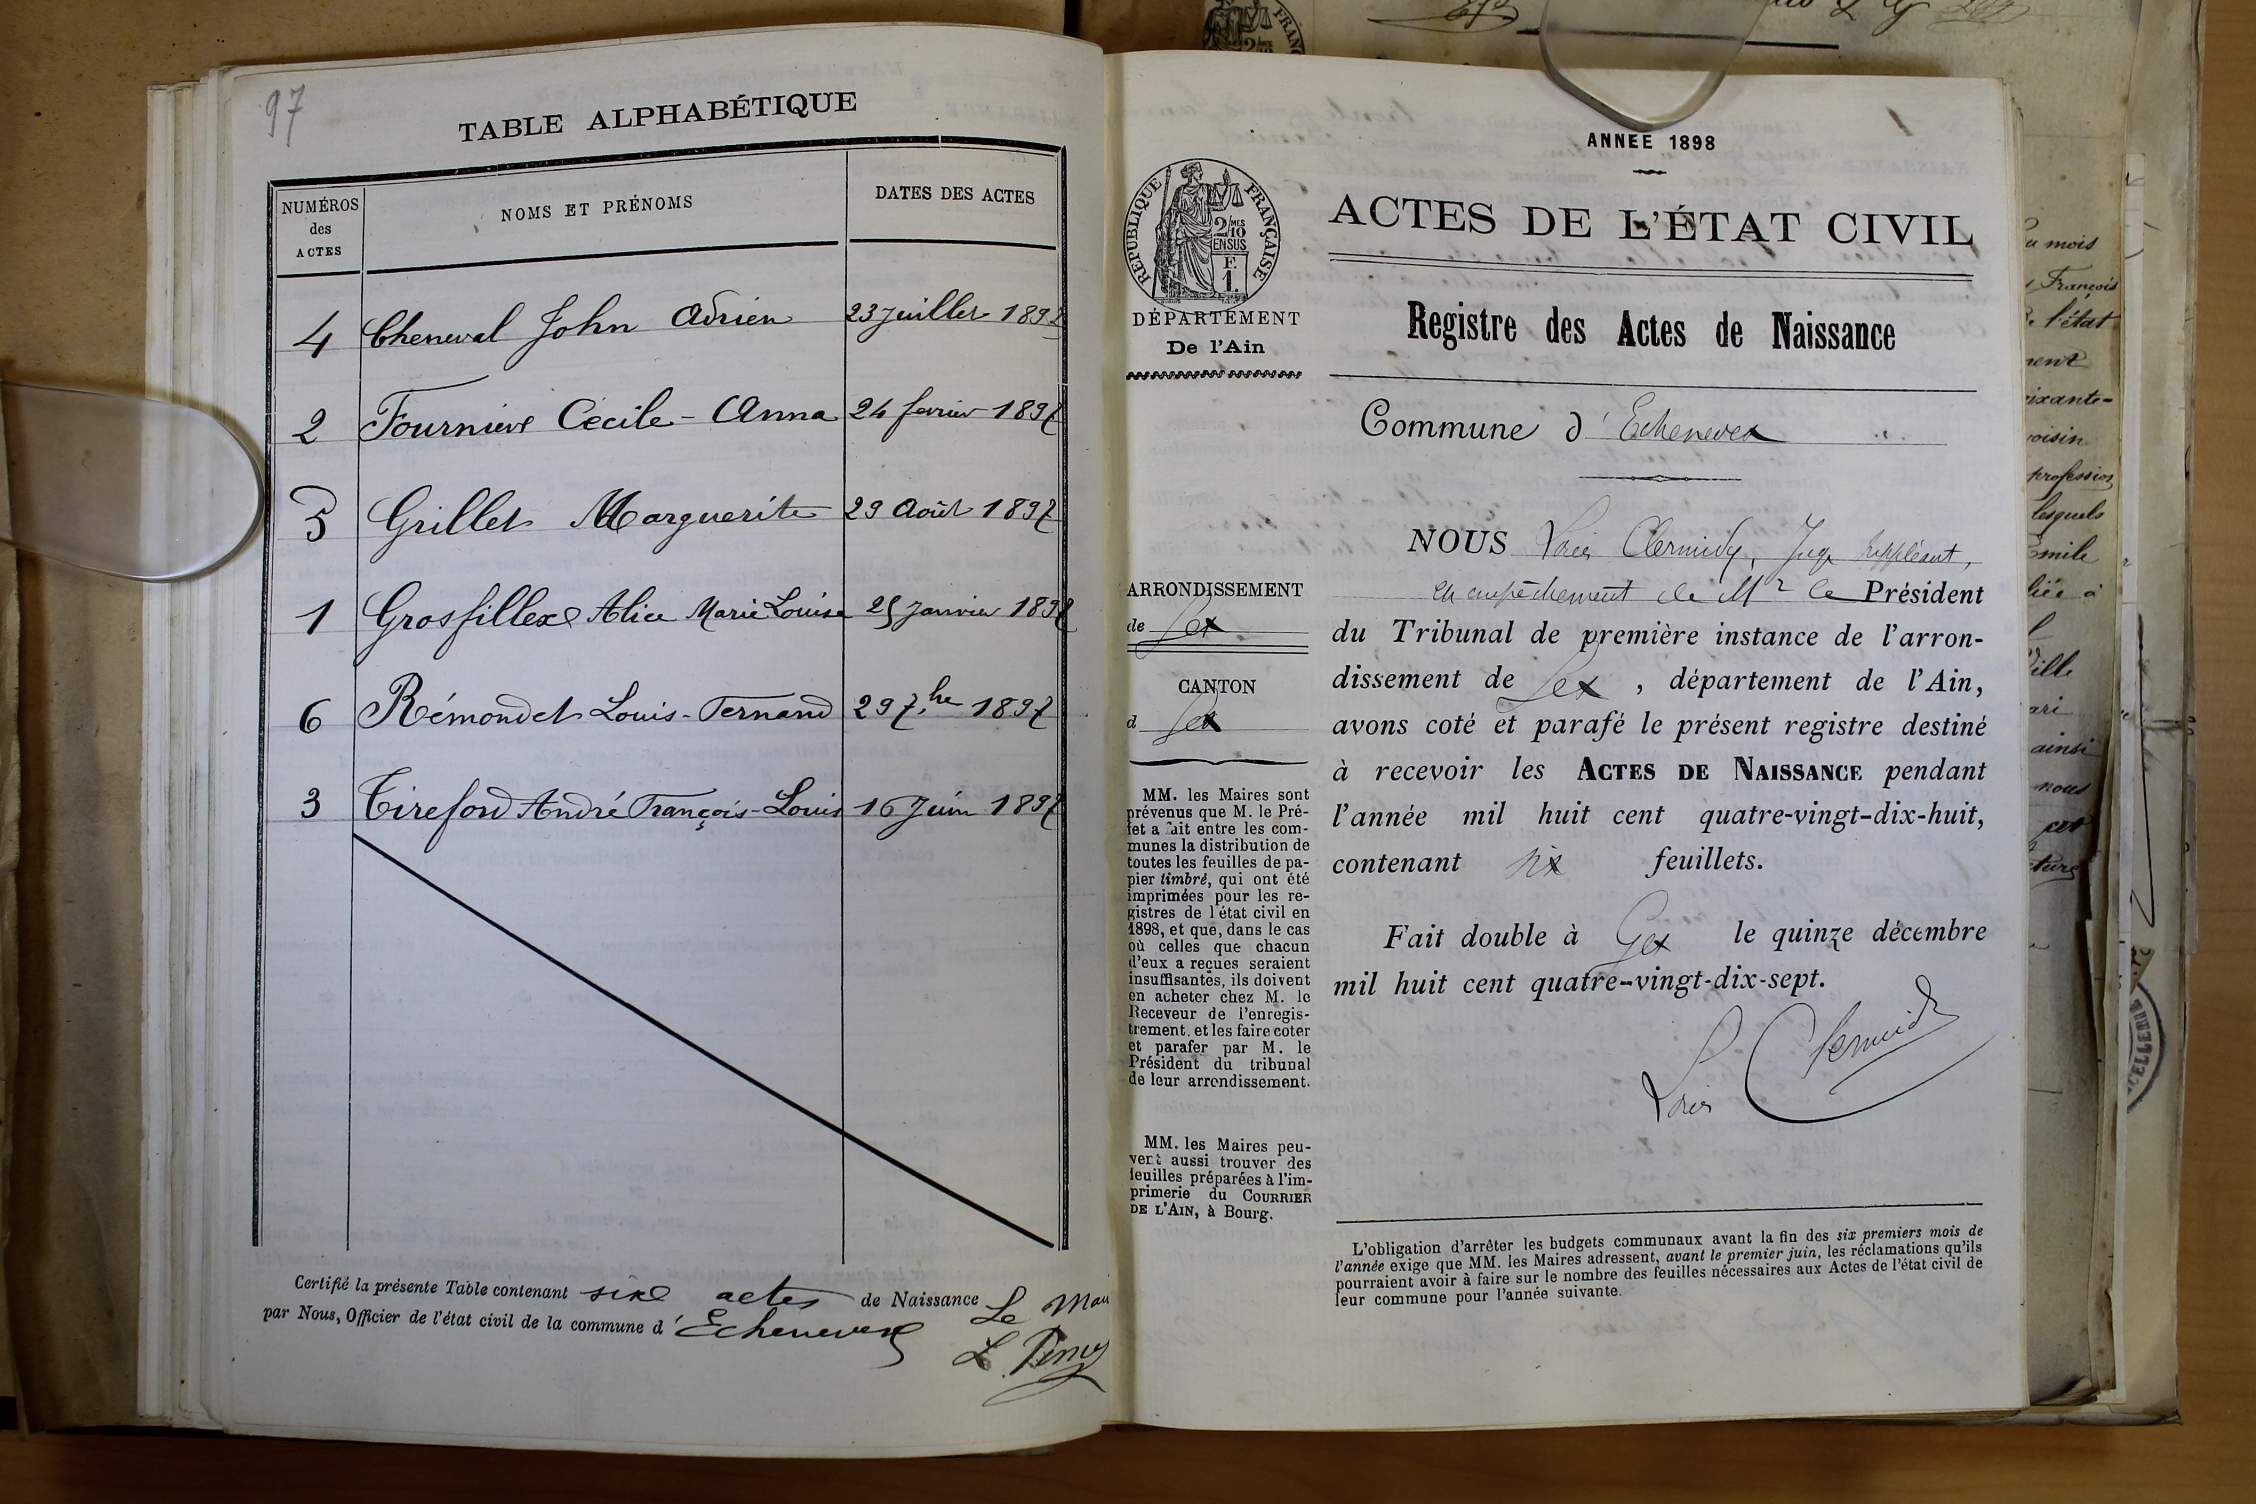 97
TABLE ALPHABÉTIQUE
NUMÉROS des ACTES
NOMS ET PRÉNOMS
DATES DES ACTES
4 Cheneval John Adrien 23 Juillet 1897
2 Fournier Cécile - Anna 24 fevrier 1897
5 Grillet Marguerite 29 Août 1897
1 Grosfillex Alice Marie Louise 25 Janvier 1897
6 Rémondet Louis - Fernand 29 7.bre 1897
3 Tireford André François - Louis 16 Juin 1897
Certifié la présente Table contenant six actes de Naissance
par Nous, Officier de l'état civil de la commune d'Echenevex
Le Mai
L. Perny
ANNÉE 1898
RÉPUBLIQUE FRANÇAISE
2/10 MES
EN SUS
F.
1.
DÉPARTEMENT
De l'Ain
ARRONDISSEMENT
de Gex
CANTON
d Gex
MM. les Maires sont
prévenus que M. le Pré-
fet a fait entre les com-
munes la distribution de
toutes les feuilles de pa-
pier timbré, qui ont été
imprimées pour les re-
gistres de l'état civil en
1898, et que, dans le cas
où celles que chacun
d'eux a reçues seraient
insuffisantes, ils doivent
en acheter chez M. le
Receveur de l'enregis-
trement, et les faire coter
et parafer par M. le
Président du tribunal
de leur arrondissement.
MM. les Maires peu-
vent aussi trouver des
feuilles préparées à l'im-
primerie du COURRIER
DE L'AIN, à Bourg.
ACTES DE L'ÉTAT CIVIL
Registre des Actes de Naissance
Commune d'Echenevex
NOUS Clermidy, Juge suppléant,
en empêchement de Mr le Président
du Tribunal de première instance de l'arron-
dissement de Gex, département de l'Ain,
avons coté et parafé le présent registre destiné
à recevoir les ACTES DE NAISSANCE pendant
l'année mil huit cent quatre-vingt-dix-huit,
contenant six feuillets.
Fait double à Gex le quinze décembre
mil huit cent quatre-vingt-dix-sept.
Clermidy
L'obligation d'arrêter les budgets communaux avant la fin des six premiers mois de
l'année exige que MM. les Maires adressent, avant le premier juin, les réclamations qu'ils
pourraient avoir à faire sur le nombre des feuilles nécessaires aux Actes de l'état civil de
leur commune pour l'année suivante.
mois
François
l'état
voisin
profession
lesquels
ainsi
nous